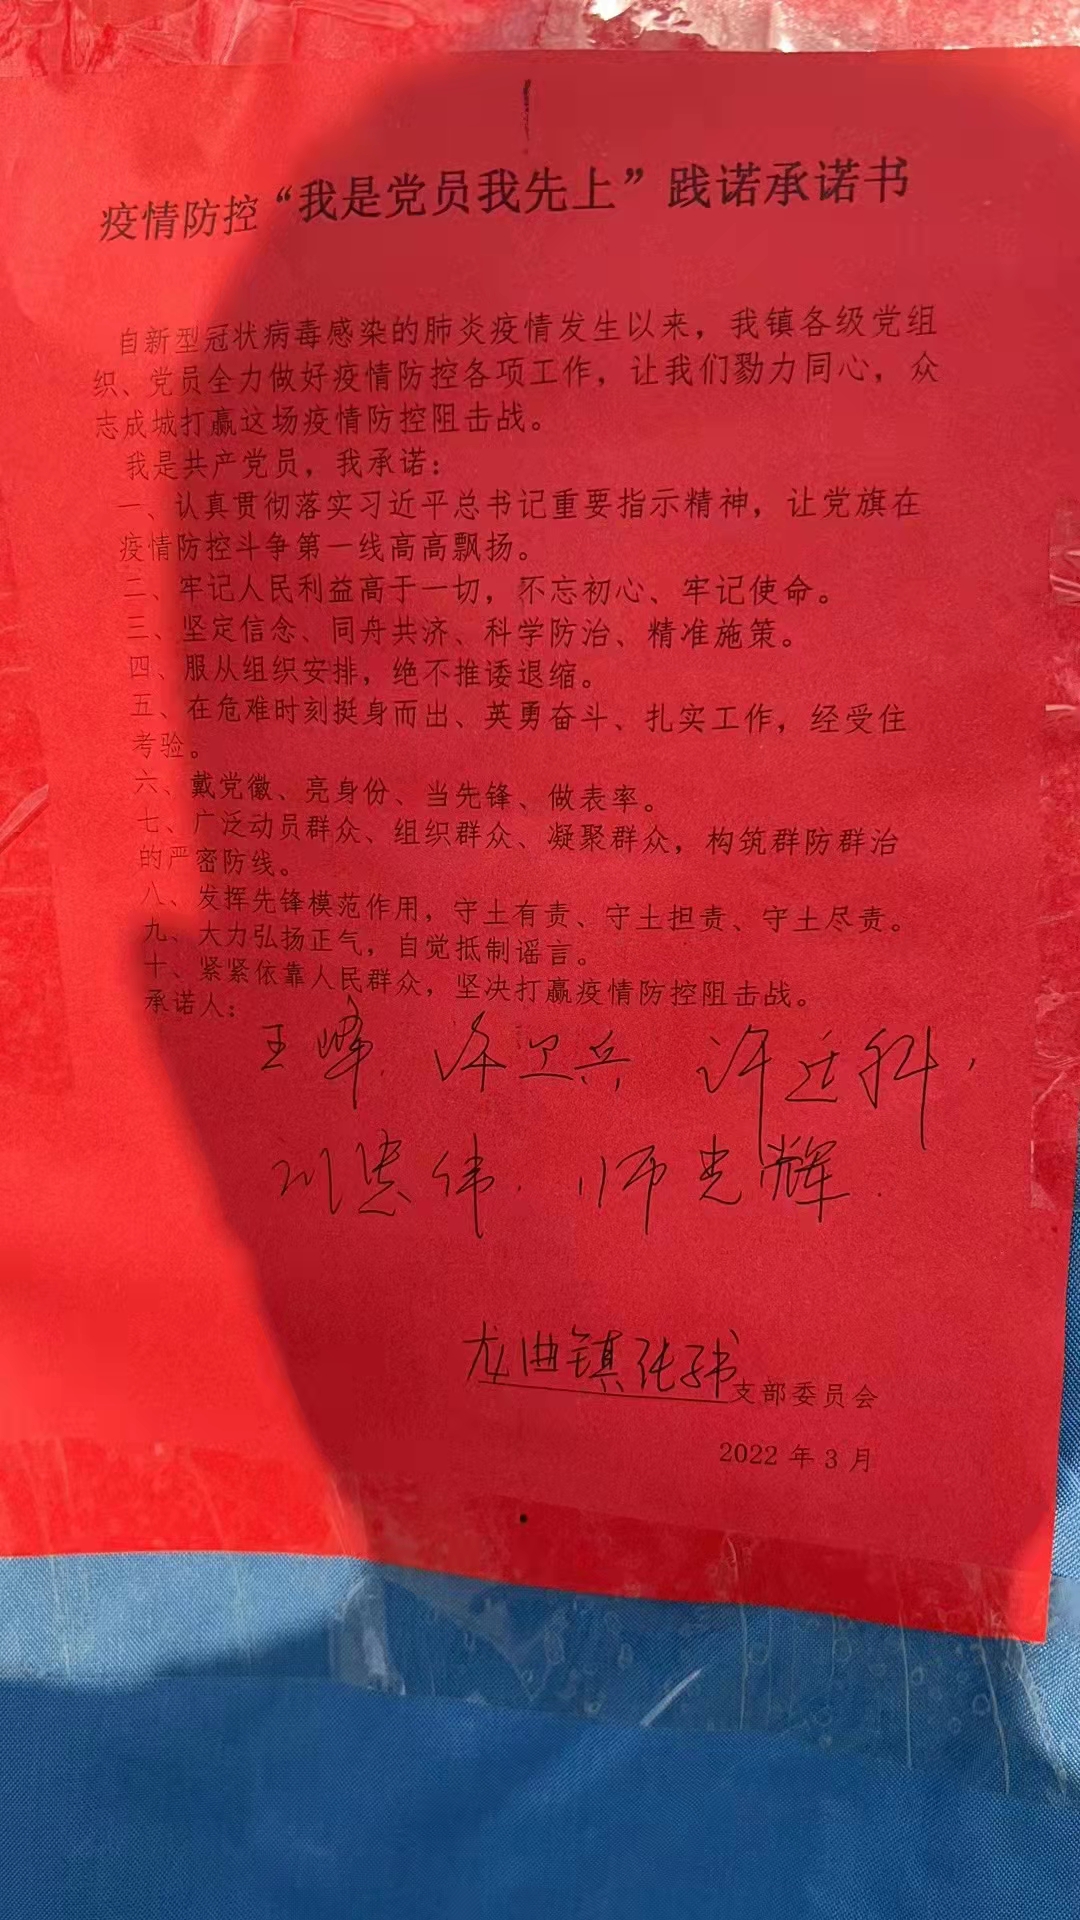 疫情防控“我是党员我先上”践诺承诺书
自新型冠状病毒感染的肺炎疫情发生以来，我镇各级党组
织、党员全力做好疫情防控各项工作，让我们勠力同心，众
志成城打赢这场疫情防控阻击战。
我是共产党员，我承诺：
一、认真贯彻落实习近平总书记重要指示精神，让党旗在
疫情防控斗争第一线高高飘扬。
二、牢记人民利益高于一切，不忘初心、牢记使命。
三、坚定信念、同舟共济、科学防治、精准施策。
四、服从组织安排，绝不推诿退缩。
五、在危难时刻挺身而出、英勇奋斗、扎实工作，经受住
考验。
六、戴党徽、亮身份、当先锋、做表率。
七、广泛动员群众、组织群众、凝聚群众，构筑群防群治
的严密防线。
八、发挥先锋模范作用，守土有责、守土担责、守土尽责。
九、大力弘扬正气，自觉抵制谣言。
十、紧紧依靠人民群众，坚决打赢疫情防控阻击战。
承诺人：
王峰 卫兵 许廷科
刘洪伟 师光辉
龙曲镇张 支部委员会
2022年3月